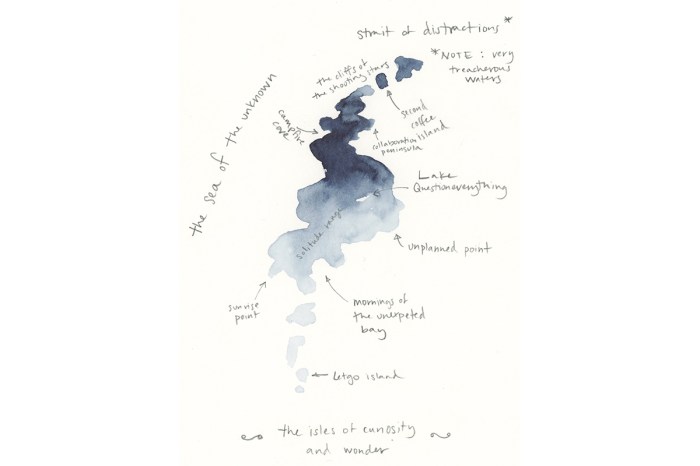 strait of distractions *
* NOTE : very
treacherous
waters
the cliffs of
the shouting stars
second
coffee
island
campfire
cove
collaboration
peninsula
the sea of the unknown
Lake
Questioneverything
solitude range
unplanned point
sunrise
point
mornings of
the unexpeted
bay
letgo island
the isles of curiosity
and wonder